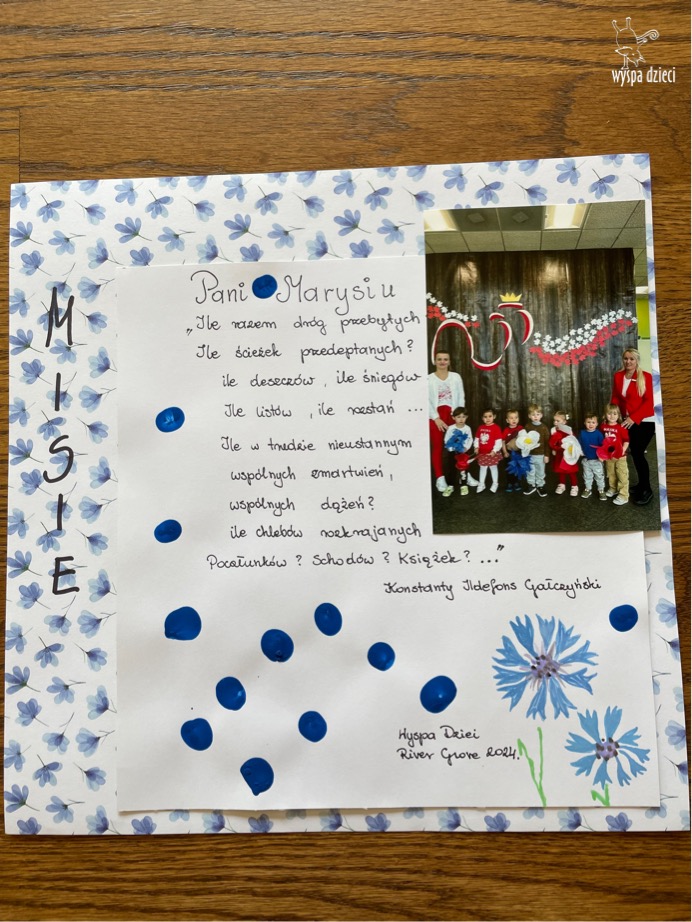 wyspa dzieci
MISIE
Pani Marysiu
„Ile razem dróg przebytych
Ile ścieżek przedeptanych?
ile deszczów, ile śniegów
Ile listów, ile rozstań ...
Ile w trudzie nieustannym
wspólnych zmartwień,
wspólnych dążeń?
ile chlebów rozkrajanych
Pocałunków? Schodów? Książek? ..."
Konstanty Ildefons Gałczyński
Wyspa Dziei
River Grove 2024.